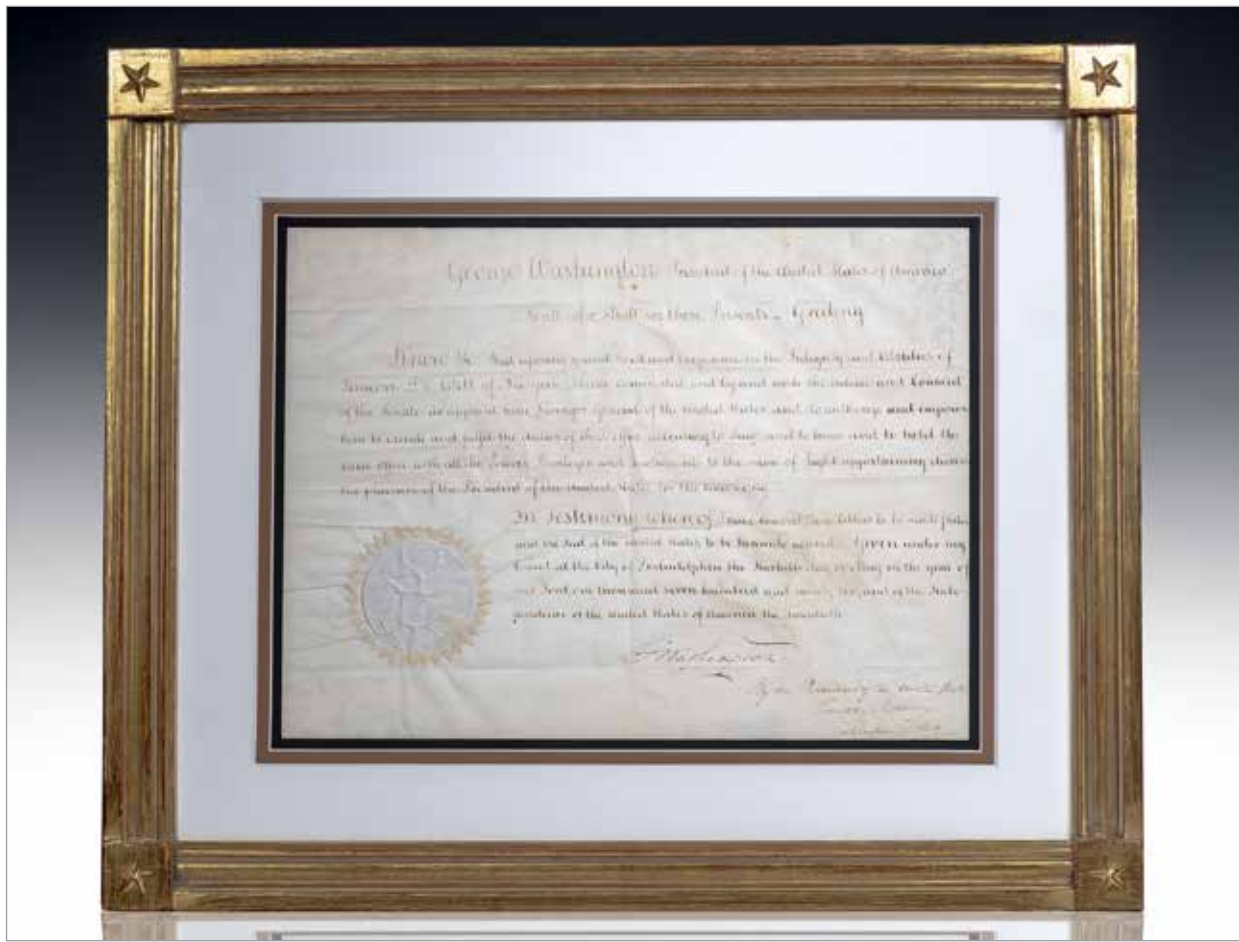 George Washington President of the United States of America.
all who shall see these Presents Greeting
Know Ye, That reposing special Trust and Confidence in the Integrity and Abilities of
Simeon De Witt of New York, I have nominated and by and with the advice and Consent
of the Senate do appoint him Surveyor General of the United States and do authorize and empower
him to execute and fulfil the duties of that office according to law; and to have and to hold the
same office with all the Powers, Privileges and to the same of Right appertaining during
the pleasure of the President of the United States for the time being
In Testimony whereof I have caused these Letters to be made Patent
and the Seal of the United States to be hereunto affixed. Given under my
Hand at the City of Philadelphia the day of May in the year of
our Lord one thousand seven hundred and ninety six, and of the Inde-
pendence of the United States of America the Twentieth
G Washington
By the President